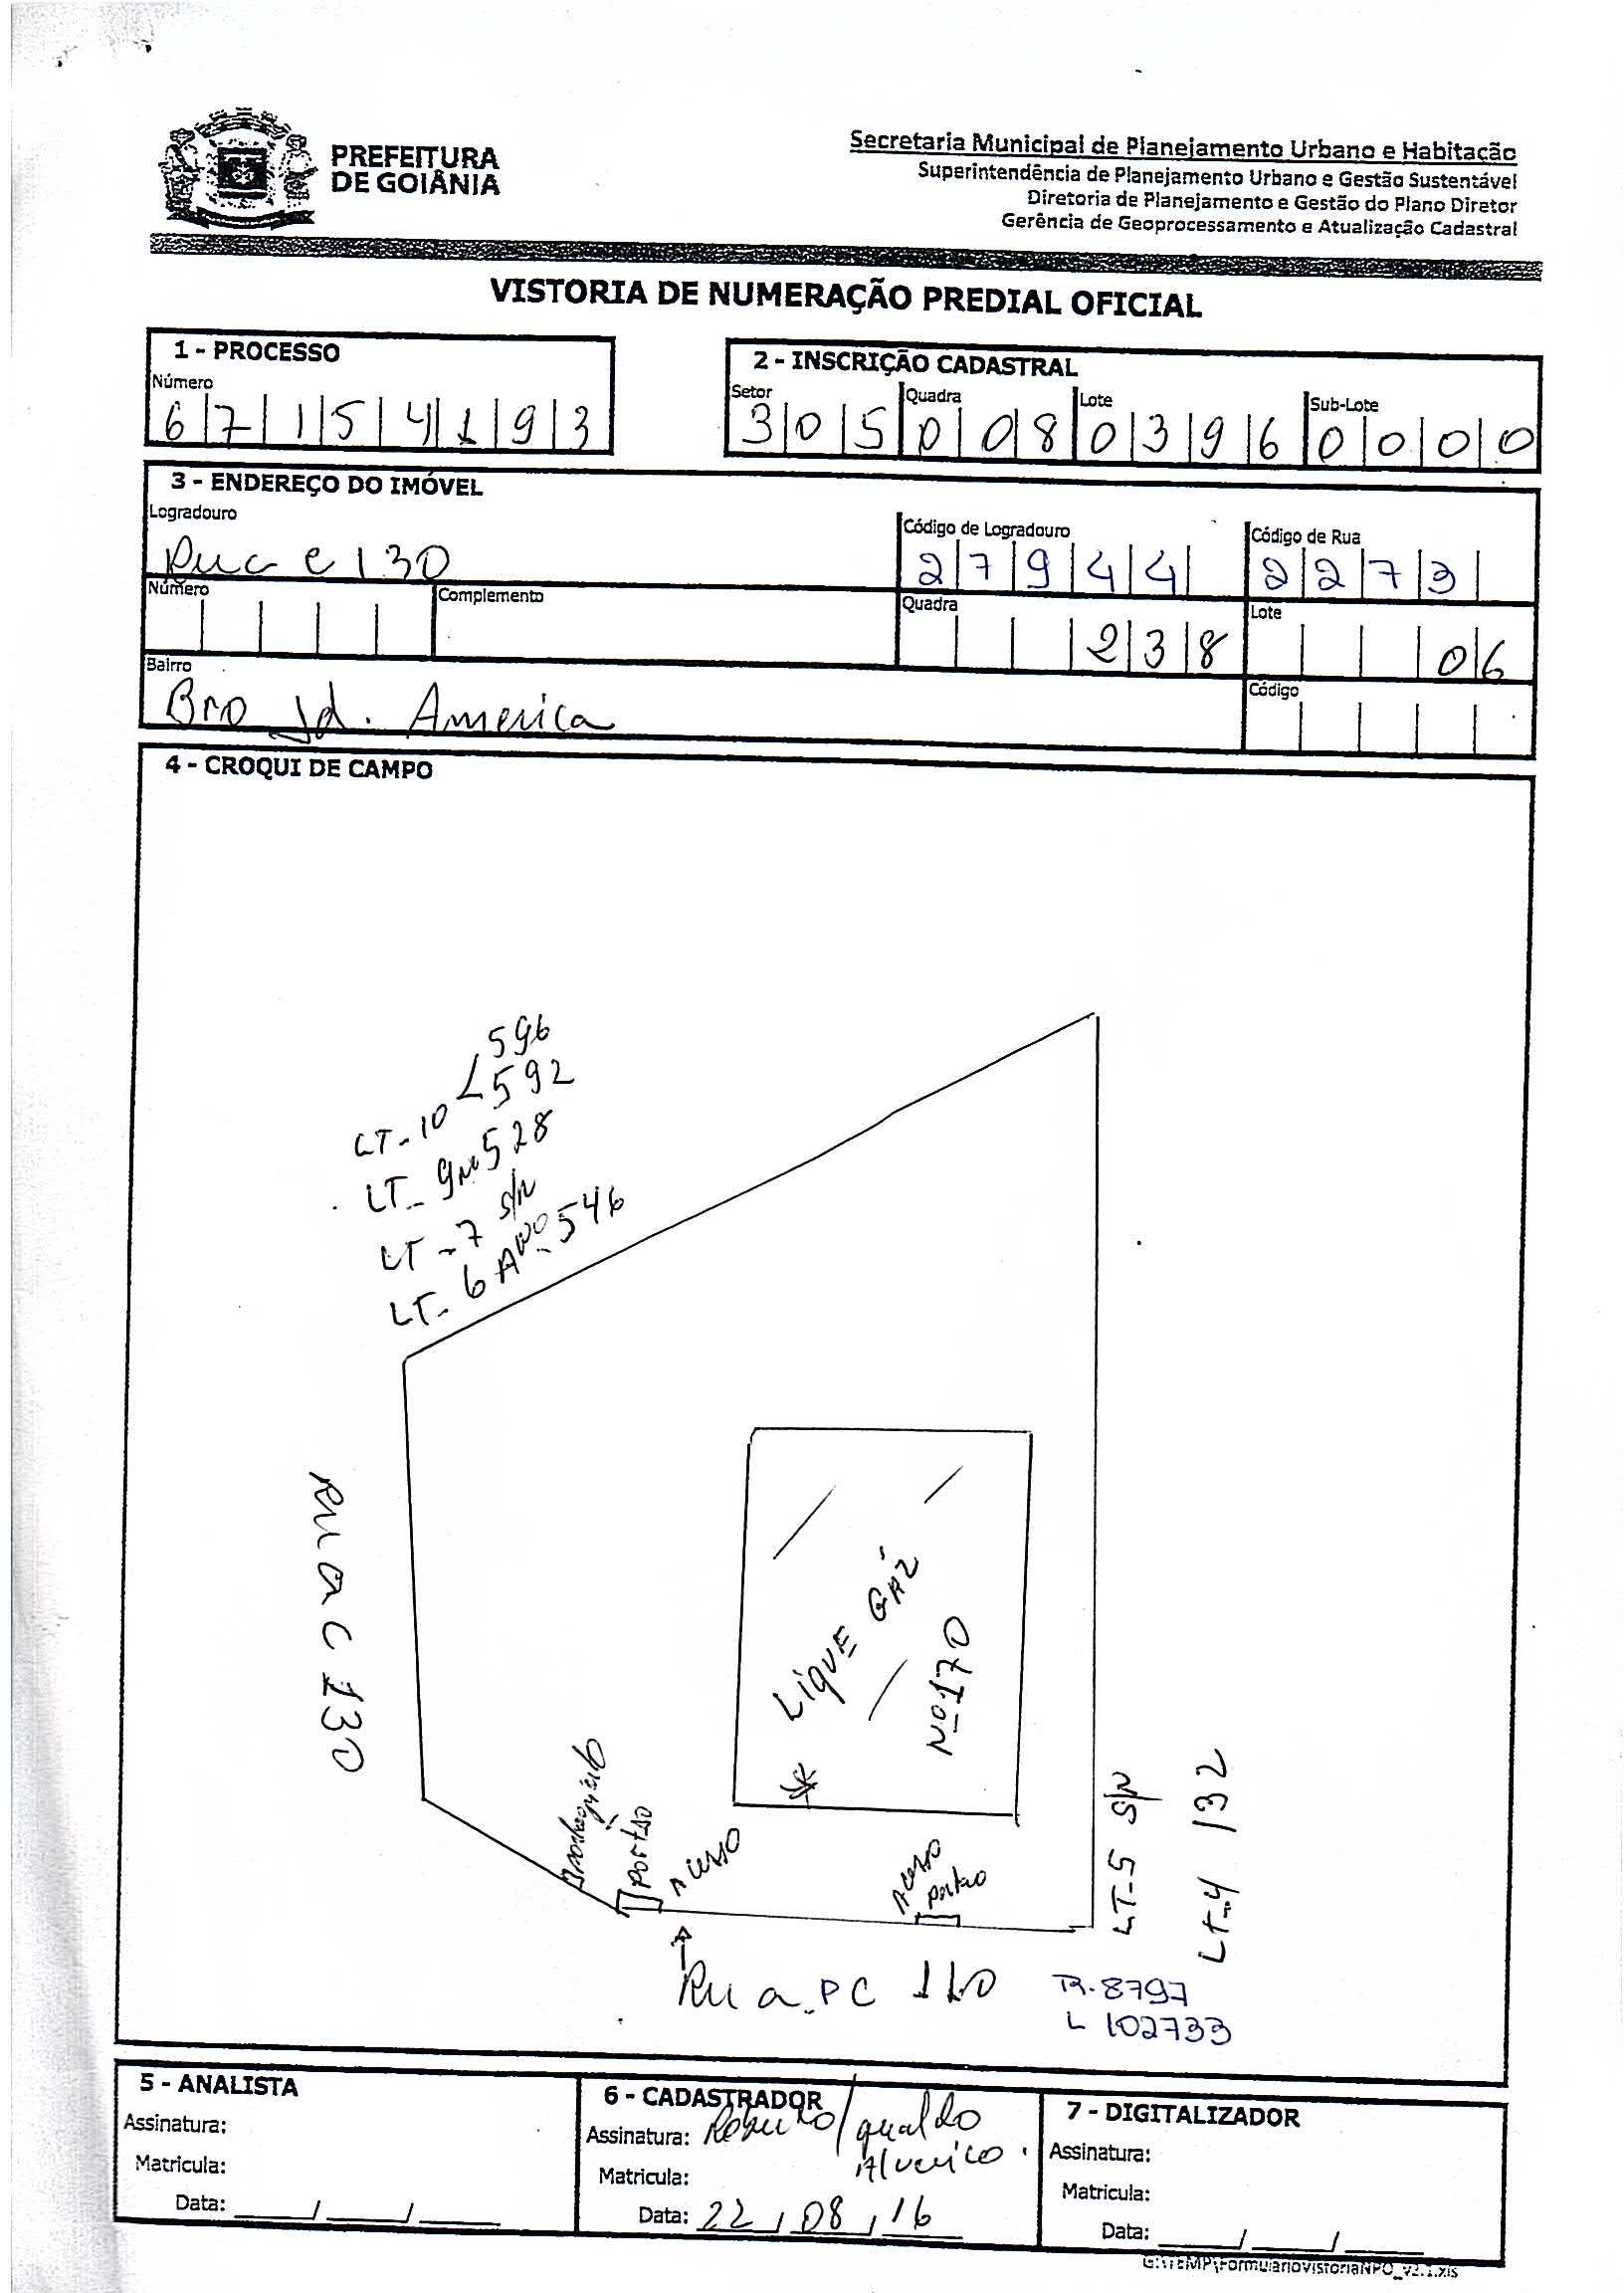 PREFEITURA
DE GOIÂNIA
Secretaria Municipal de Planejamento Urbano e Habitação
Superintendência de Planejamento Urbano e Gestão Sustentável
Diretoria de Planejamento e Gestão do Plano Diretor
Gerência de Geoprocessamento e Atualização Cadastral
VISTORIA DE NUMERAÇÃO PREDIAL OFICIAL
1 - PROCESSO
Número
6 7 1 5 4 1 9 3
2 - INSCRIÇÃO CADASTRAL
Setor Quadra Lote Sub-Lote
3 0 5 0 0 8 0 3 9 6 0 0 0 0
3 - ENDEREÇO DO IMÓVEL
Logradouro Código de Logradouro Código de Rua
Rua C 130 2 7 9 4 4 2 2 7 3
Número Complemento Quadra Lote
2 3 8 0 6
Bairro Código
Bro Jd. America
4 - CROQUI DE CAMPO
596
LT-10 < 592
LT- 9 Nº 528
LT-7 S/N
LT-6A Nº 546
Rua C 130
LIQUE GÁZ
Nº 170
portão
Acesso
Acesso
portao
LT-5 S/N
LT-4 132
Rua PC 110
R-8797
L 102733
5 - ANALISTA
Assinatura:
Matricula:
Data: ____/____/____
6 - CADASTRADOR
Assinatura:
Matricula:
Data: 22/08/16
7 - DIGITALIZADOR
Assinatura:
Matricula:
Data: ____/____/____
G:\TEMP\FormularioVistoriaNPO_v2.1.xls